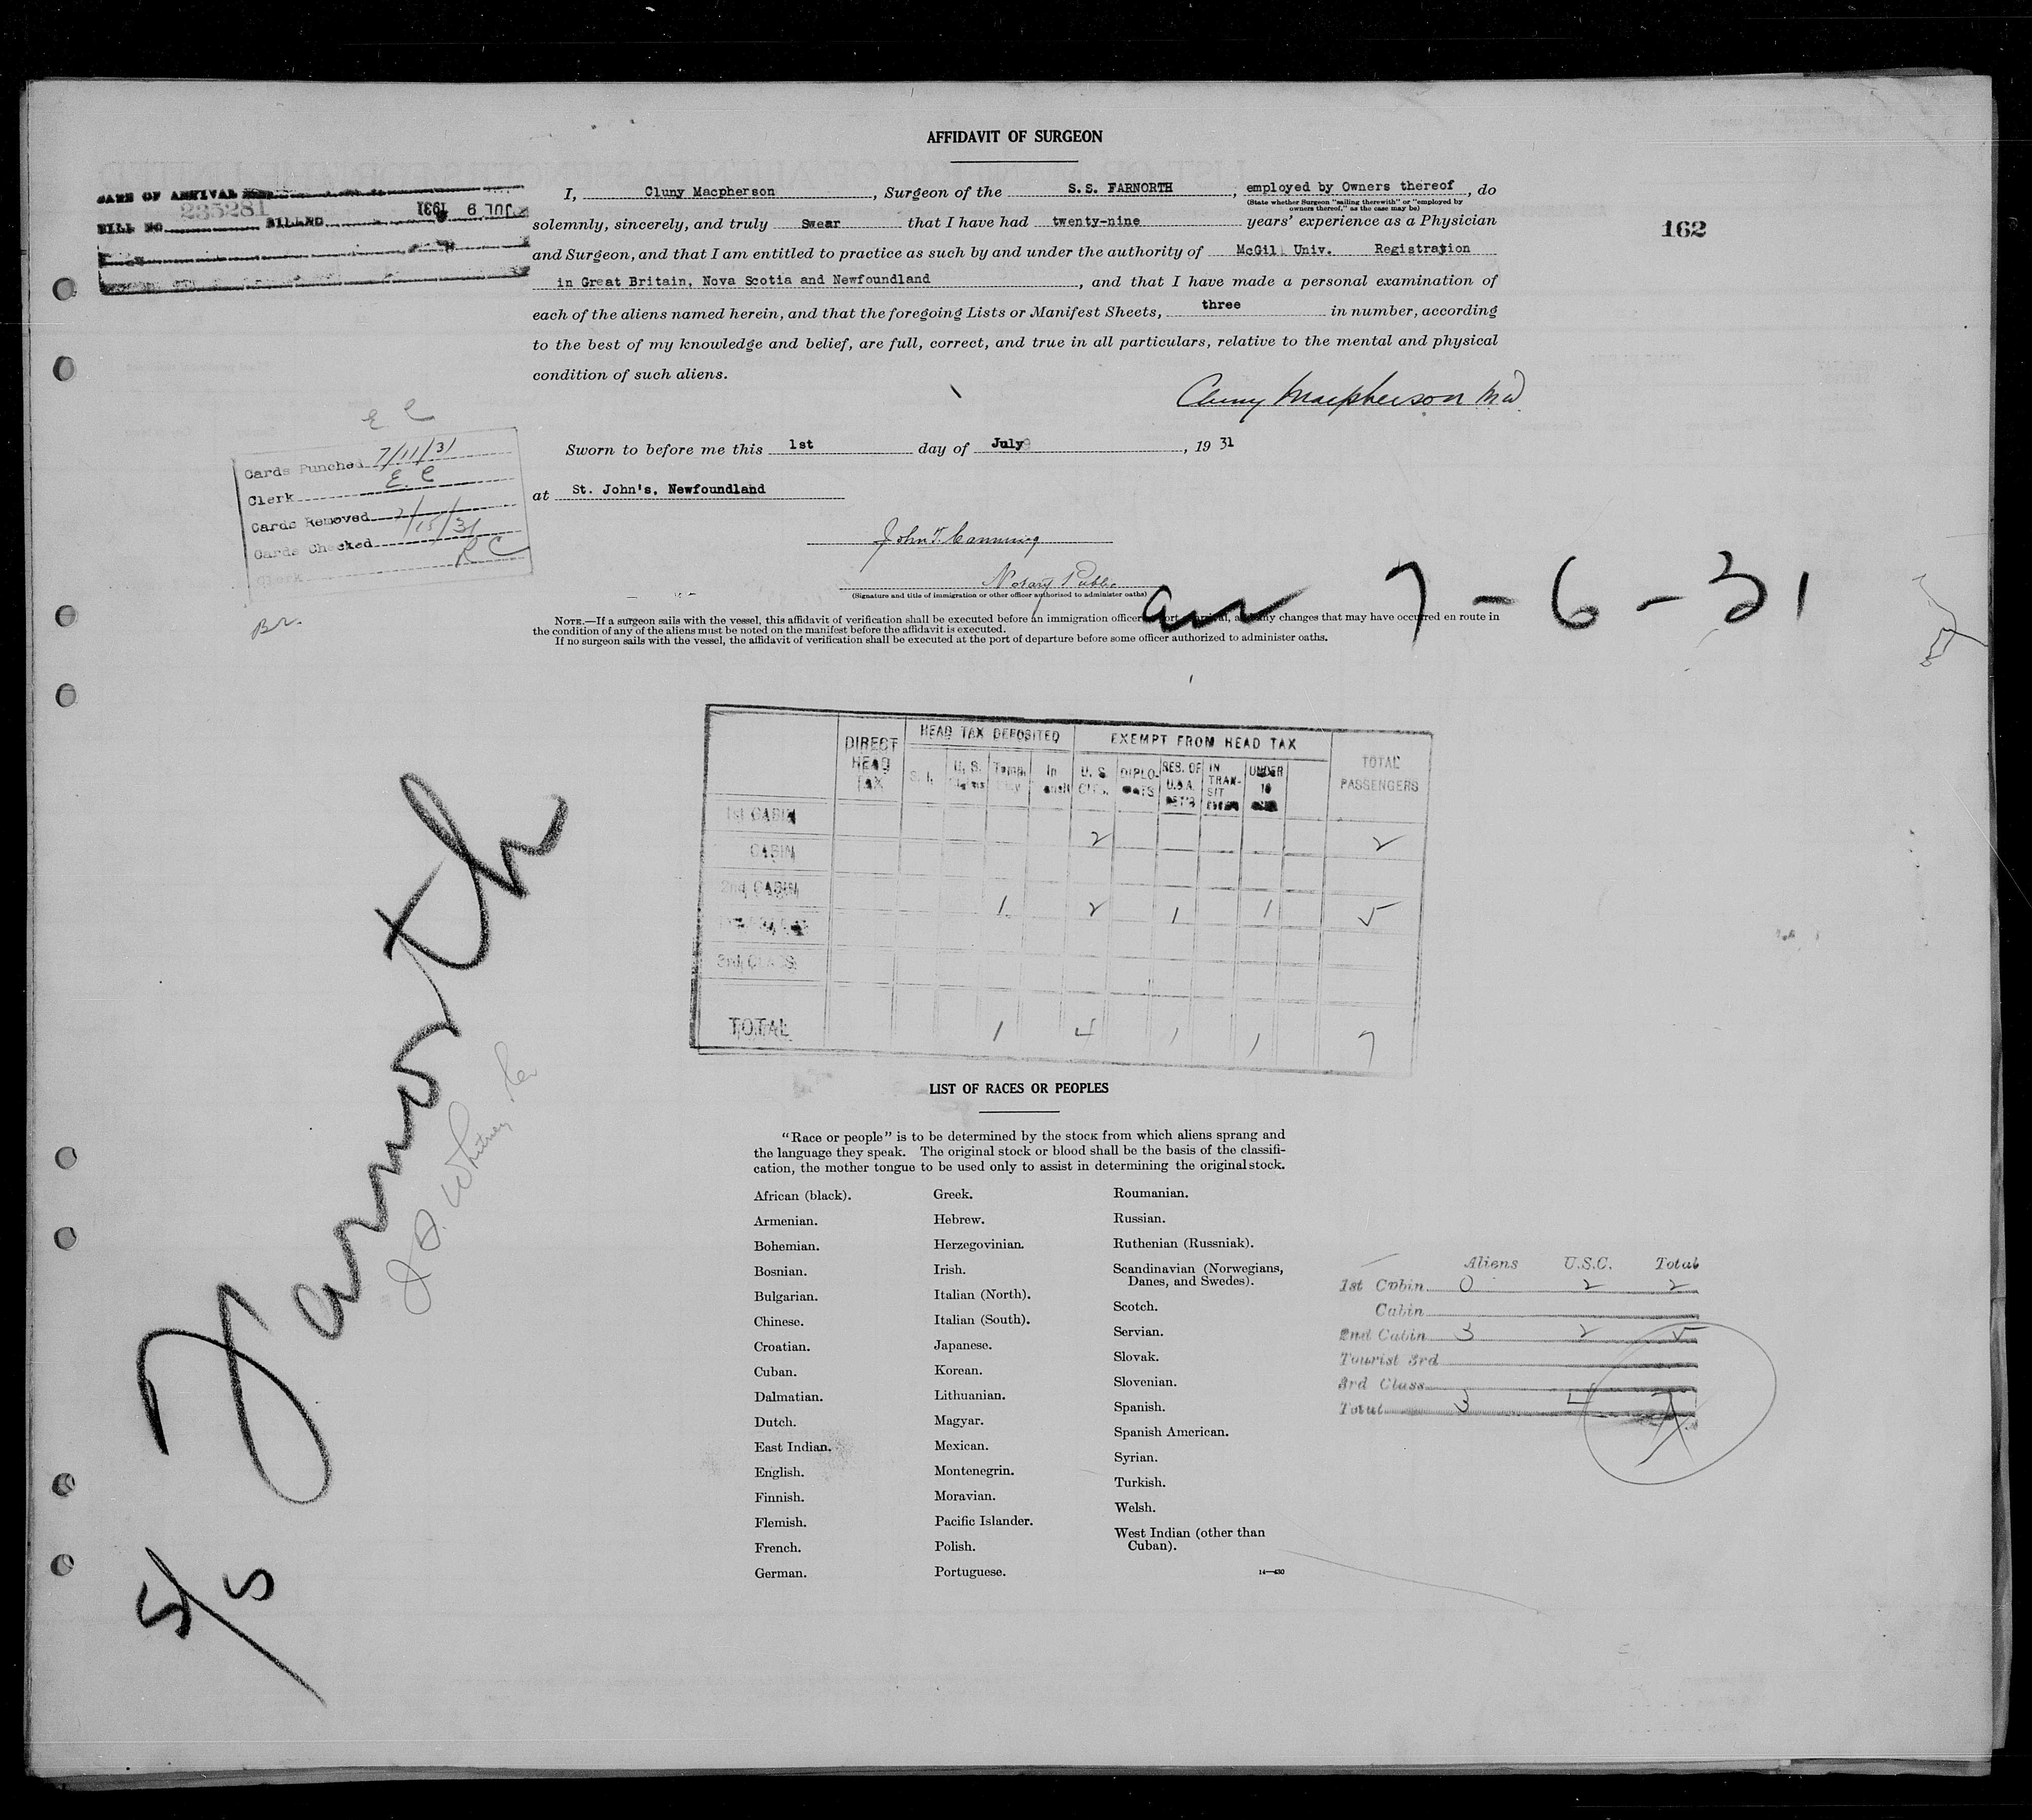 AFFIDAVIT OF SURGEON
DATE OF ARRIVAL
BILL NO 235281 BILLED JUL 9 1931
162
I, Cluny Macpherson, Surgeon of the S.S. FARNORTH, employed by Owners thereof, do
(State whether Surgeon "sailing therewith" or "employed by
owners thereof," as the case may be)
solemnly, sincerely, and truly Swear that I have had twenty-nine years' experience as a Physician
and Surgeon, and that I am entitled to practice as such by and under the authority of McGill Univ. Registration
in Great Britain, Nova Scotia and Newfoundland, and that I have made a personal examination of
each of the aliens named herein, and that the foregoing Lists or Manifest Sheets, three in number, according
to the best of my knowledge and belief, are full, correct, and true in all particulars, relative to the mental and physical
condition of such aliens.
Cluny Macpherson MD
Sworn to before me this 1st day of July, 19 31
at St. John's, Newfoundland
John T. Canning
Notary Public
(Signature and title of immigration or other officer authorized to administer oaths)
E C
Cards Punched 7/11/31
Clerk E. C
Cards Removed 7/15/31
Cards Checked R C
Clerk
Br.
arr 7-6-31
NOTE.—If a surgeon sails with the vessel, this affidavit of verification shall be executed before an immigration officer changes that may have occurred en route in
the condition of any of the aliens must be noted on the manifest before the affidavit is executed.
If no surgeon sails with the vessel, the affidavit of verification shall be executed at the port of departure before some officer authorized to administer oaths.
DIRECT HEAD TAX HEAD TAX DEPOSITED EXEMPT FROM HEAD TAX TOTAL PASSENGERS
S. I. U. S. In U. S. CITS. DIPLO- MATS RES. OF U.S.A. RET'G IN TRAN- SIT UNDER 16
1st CABIN 2 2
CABIN
2nd CABIN 1 2 1 1 5
3rd CLASS
TOTAL 1 4 1 1 7
Farnorth
J. A. Whitney
S/S
LIST OF RACES OR PEOPLES
"Race or people" is to be determined by the stock from which aliens sprang and
the language they speak. The original stock or blood shall be the basis of the classifi-
cation, the mother tongue to be used only to assist in determining the original stock.
African (black).
Armenian.
Bohemian.
Bosnian.
Bulgarian.
Chinese.
Croatian.
Cuban.
Dalmatian.
Dutch.
East Indian.
English.
Finnish.
Flemish.
French.
German.
Greek.
Hebrew.
Herzegovinian.
Irish.
Italian (North).
Italian (South).
Japanese.
Korean.
Lithuanian.
Magyar.
Mexican.
Montenegrin.
Moravian.
Pacific Islander.
Polish.
Portuguese.
Roumanian.
Russian.
Ruthenian (Russniak).
Scandinavian (Norwegians,
Danes, and Swedes).
Scotch.
Servian.
Slovak.
Slovenian.
Spanish.
Spanish American.
Syrian.
Turkish.
Welsh.
West Indian (other than
Cuban).
14—430
Aliens U.S.C. Total
1st Cabin 0 2 2
Cabin
2nd Cabin 3 2 5
Tourist 3rd
3rd Class
Total 3 4 7